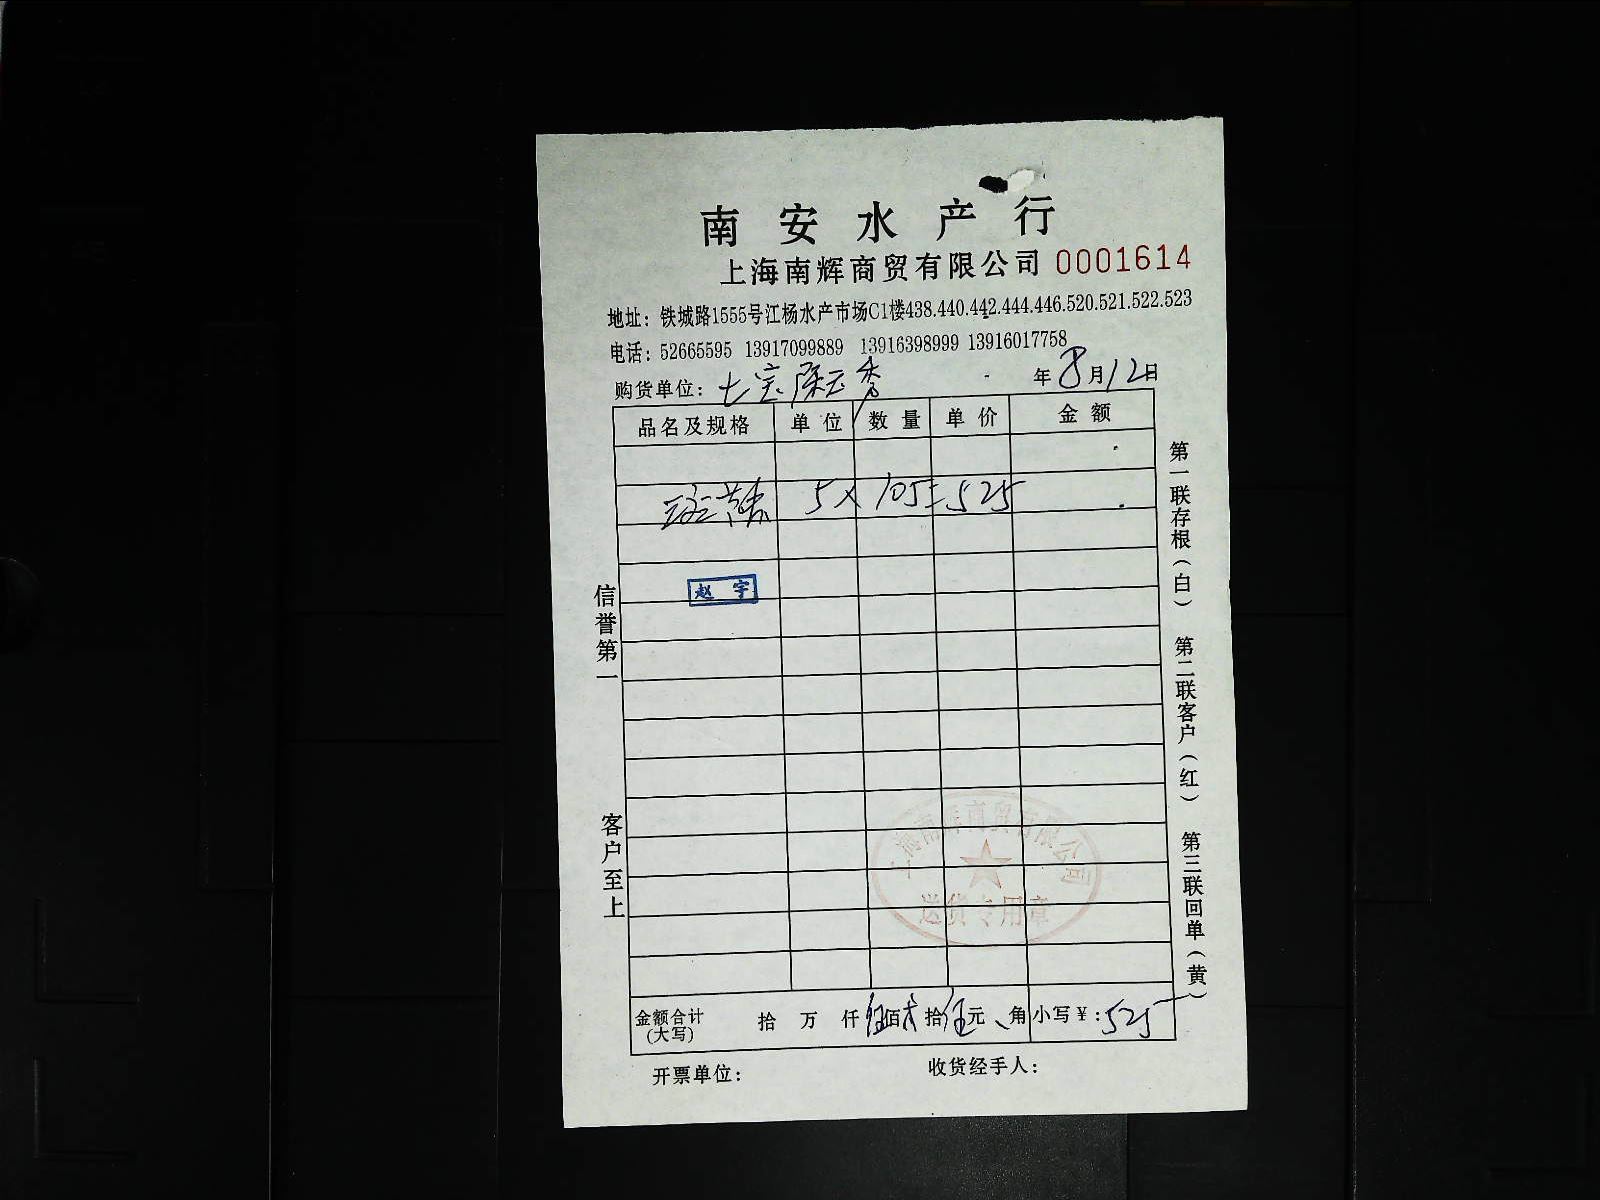 南安水产行
上海南辉商贸有限公司 0001614
地址：铁城路1555号江杨水产市场C1楼438.440.442.444.446.520.521.522.523
电话：52665595 13917099889 13916398999 13916017758
购货单位：七宝 陈玉秀 年8月12日
品名及规格 单位 数量 单价 金额
5×105=525
赵宇
信誉第一
客户至上
第一联存根（白） 第二联客户（红） 第三联回单（黄）
上海南辉商贸有限公司
送货专用章
金额合计（大写） 拾 万 仟 伍佰 贰拾 伍元 角 小写￥：525
开票单位： 收货经手人：